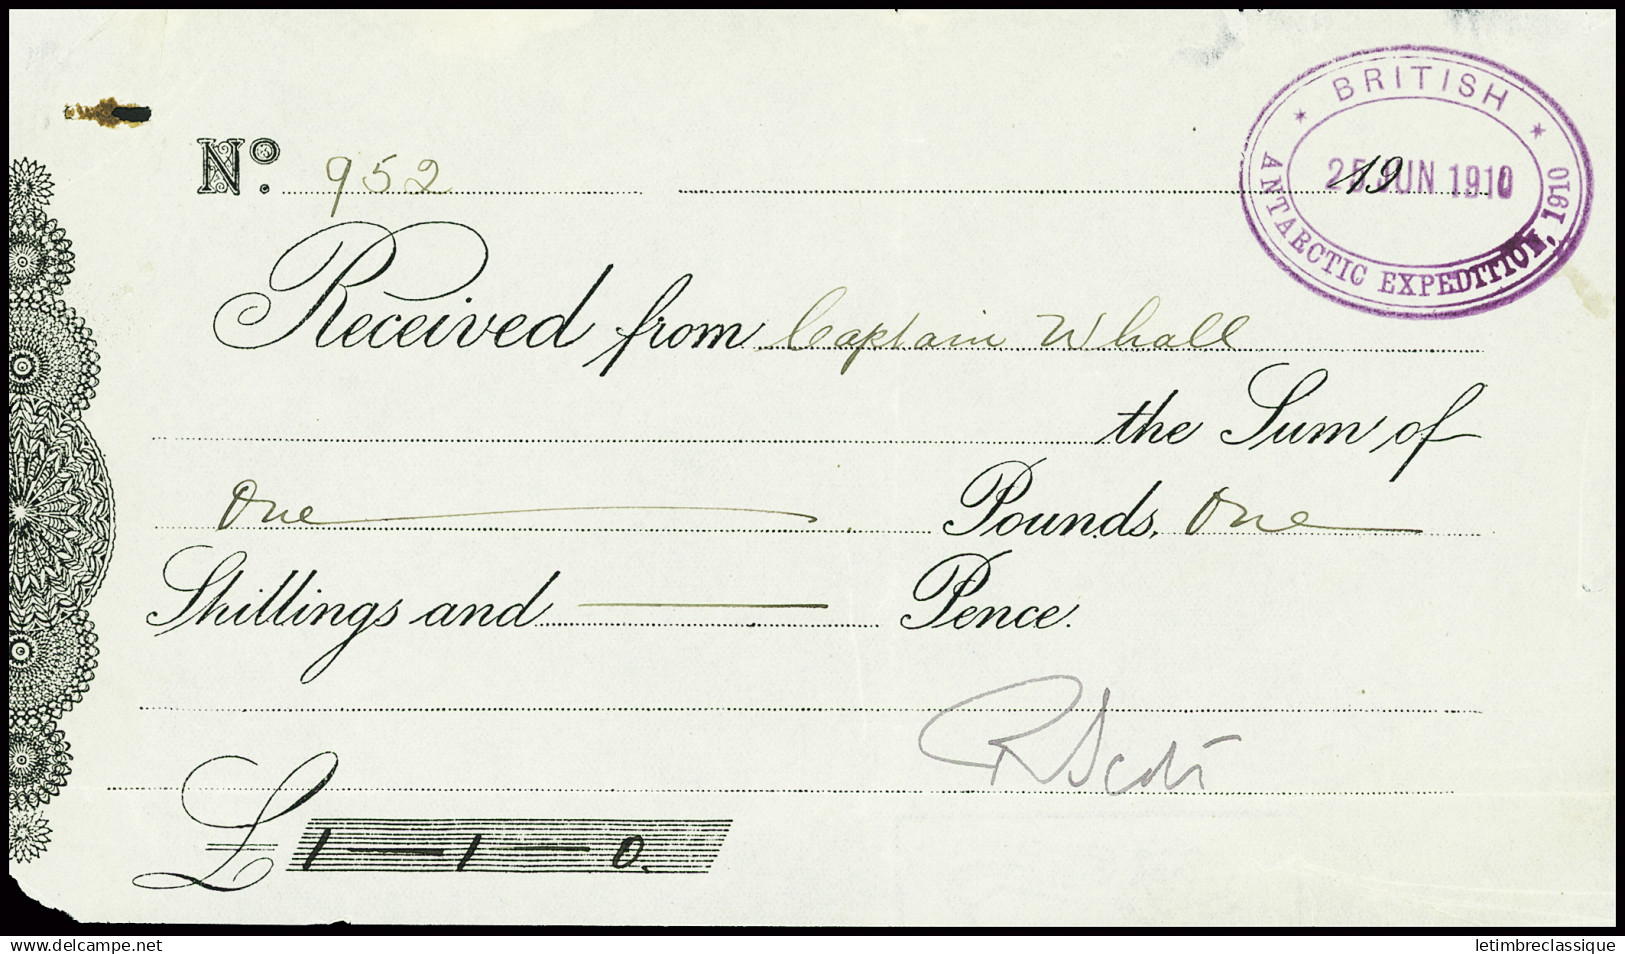 BRITISH
25 JUN 1910
ANTARCTIC EXPEDITION, 1910
No. 952 19
Received from Captain Whall
the Sum of
One Pounds, One
Shillings and Pence.
RScott
£ 1 — 1 — 0.
www.delcampe.net letimbreclassique